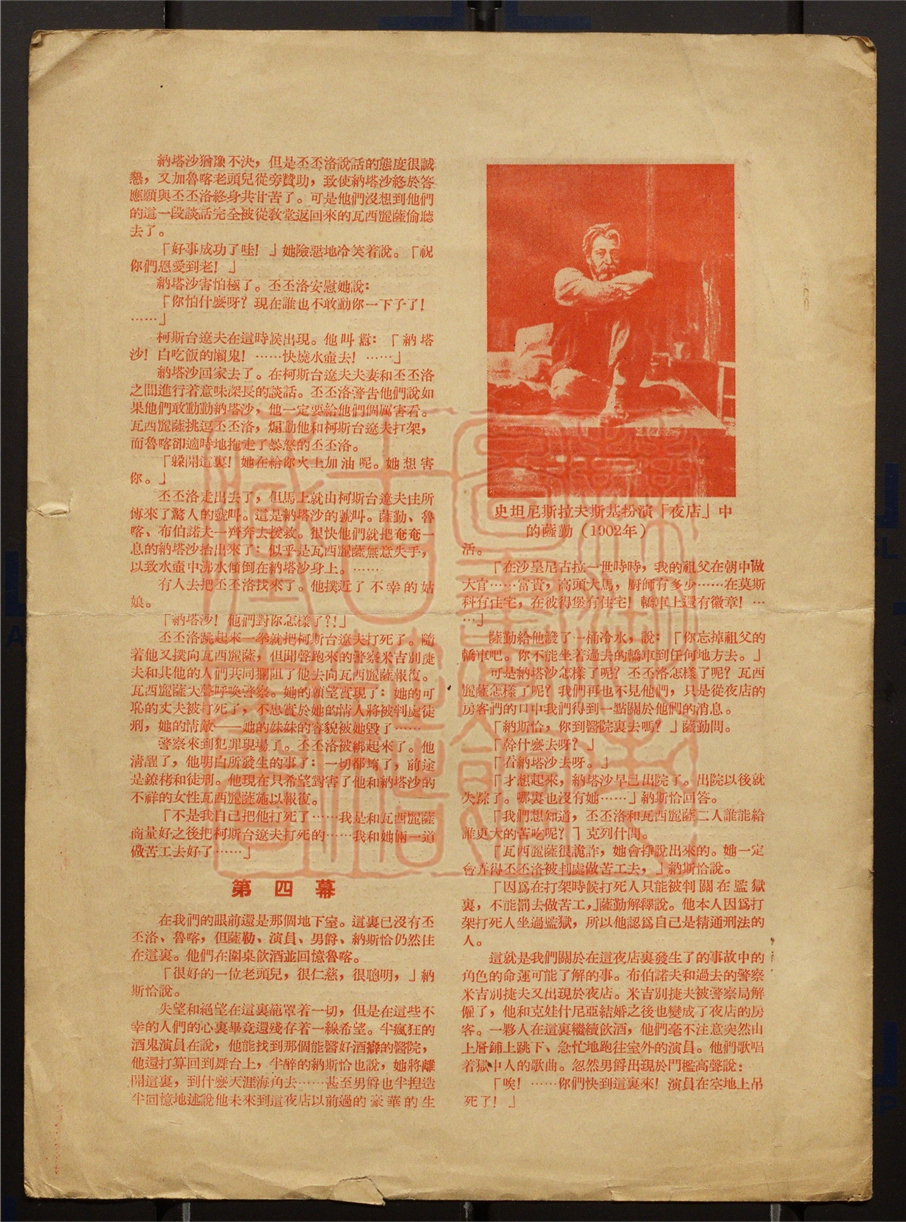 納塔沙猶豫不決，但是丕丕洛說話的態度很誠
懇，又加魯喀老頭兒從旁贊助，致使納塔沙終於答
應願與丕丕洛終身共甘苦了。可是他們沒想到他們
的這一段談話完全被從敎堂返回來的瓦西麗薩偷聽
去了。
「好事成功了哇！」她險惡地冷笑着說。「祝
你們恩愛到老！」
納塔沙害怕極了。丕丕洛安慰她說：
「你怕什麼呀？現在誰也不敢動你一下子了！
……」
柯斯台遼夫在這時候出現。他叫囂：「納塔
沙！白吃飯的懶鬼！……快燒水壺去！……」
納塔沙回家去了。在柯斯台遼夫夫妻和丕丕洛
之間進行着意味深長的談話。丕丕洛警告他們說如
果他們敢動動納塔沙，他一定要給他們個厲害看。
瓦西麗薩挑逗丕丕洛，煽動他和柯斯台遼夫打架，
而魯喀卻適時地拖走了暴怒的丕丕洛。
「躱開這裏！她在給你火上加油呢。她想害
你。」
丕丕洛走出去了，但馬上就由柯斯台遼夫住所
傳來了驚人的號叫。這是納塔沙的號叫。薩勤、魯
喀、布伯諾夫一齊奔去援救。很快他們就把奄奄一
息的納塔沙抬出來了：似乎是瓦西麗薩無意失手，
以致水壺中沸水傾倒在納塔沙身上。……
有人去把丕丕洛找來了。他撲近了不幸的姑
娘。
「納塔沙！他們對你怎樣了？！」
丕丕洛跳起來一拳就把柯斯台遼夫打死了。隨
着他又撲向瓦西麗薩，但聞聲跑來的警察米吉別捷
夫和其他的人們共同攔阻了他去向瓦西麗薩報復。
瓦西麗薩大聲呼喚警察。她的願望實現了：她的可
恥的丈夫被打死了，不忠實於她的情人將被判處徒
刑，她的情敵——她的妹妹的容貌被她毀了……
警察來到犯罪現場了。丕丕洛被綁起來了。他
淸醒了，他明白所發生的事了：一切都壞了，前途
是鐐栲和徒刑。他現在只希望對害了他和納塔沙的
不祥的女性瓦西麗薩施以報復。
「不是我自己把他打死了……我是和瓦西麗薩
商量好之後把柯斯台遼夫打死的……我和她倆一道
做苦工去好了……」
第四幕
在我們的眼前還是那個地下室。這裏已沒有丕
丕洛、魯喀，但薩勒、演員、男爵、納斯恰仍然住
在這裏。他們在圍桌飮酒並回憶魯喀。
「很好的一位老頭兒，很仁慈，很聰明，」納
斯恰說。
失望和絕望在這裏籠罩着一切，但是在這些不
幸的人們的心裏畢竟還殘存着一線希望。半瘋狂的
酒鬼演員在說，他能找到那個能醫好酒癖的醫院，
他還打算回到舞台上，半醉的納斯恰也說，她將離
開這裏，到什麼天涯海角去……甚至男爵也半揑造
半回憶地述說他未來到這夜店以前過的豪華的生
史坦尼斯拉夫斯基扮演「夜店」中
的薩勤（1902年）
活。
「在沙皇尼古拉一世時時，我的祖父在朝中做
大官……富貴，高頭大馬，厨師有多少……在莫斯
科有住宅，在彼得堡有住宅！轎車上還有徽章！…
…」
薩勤給他潑了一桶冷水，說：「你忘掉祖父的
轎車吧。你不能坐着過去的轎車到任何地方去。」
可是納塔沙怎樣了呢？丕丕洛怎樣了呢？瓦西
麗薩怎樣了呢？我們再也不見他們，只是從夜店的
房客們的口中我們得到一點關於他們的消息。
「納斯恰，你到醫院裏去嗎？」薩勤問。
「幹什麼去呀？」
「看納塔沙去呀。」
「才想起來，納塔沙早已出院了。出院以後就
失踪了。哪裏也沒有她……」納斯恰回答。
「我們想知道，丕丕洛和瓦西麗薩二人誰能給
誰更大的苦吃呢？」克列什問。
「瓦西麗薩很詭詐，她會掙脫出來的。她一定
會弄得丕丕洛被判處做苦工去，」納斯恰說。
「因爲在打架時候打死人只能被判關在監獄
裏，不能罰去做苦工，」薩勤解釋說。他本人因爲打
架打死人坐過監獄，所以他認爲自己是精通刑法的
人。
這就是我們關於在這夜店裏發生了的事故中的
角色的命運可能了解的事。布伯諾夫和過去的警察
米吉別捷夫又出現於夜店。米吉別捷夫被警察局解
僱了，他和克娃什尼亞結婚之後也變成了夜店的房
客。一夥人在這裏繼續飮酒，他們毫不注意突然由
上層鋪上跳下、急忙地跑往室外的演員。他們歌唱
着獄中人的歌曲。忽然男爵出現於門檻高聲說：
「唉！……你們快到這裏來！演員在空地上吊
死了！」